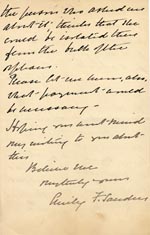 the person who asked me
about it thinks that she
could be isolated there
from the bulk of the
orphans.
Please let me know, also,
what payment would
be necessary —
Hoping you won't mind
my writing to you about
this
Believe me
yours
Emily F. Sanders